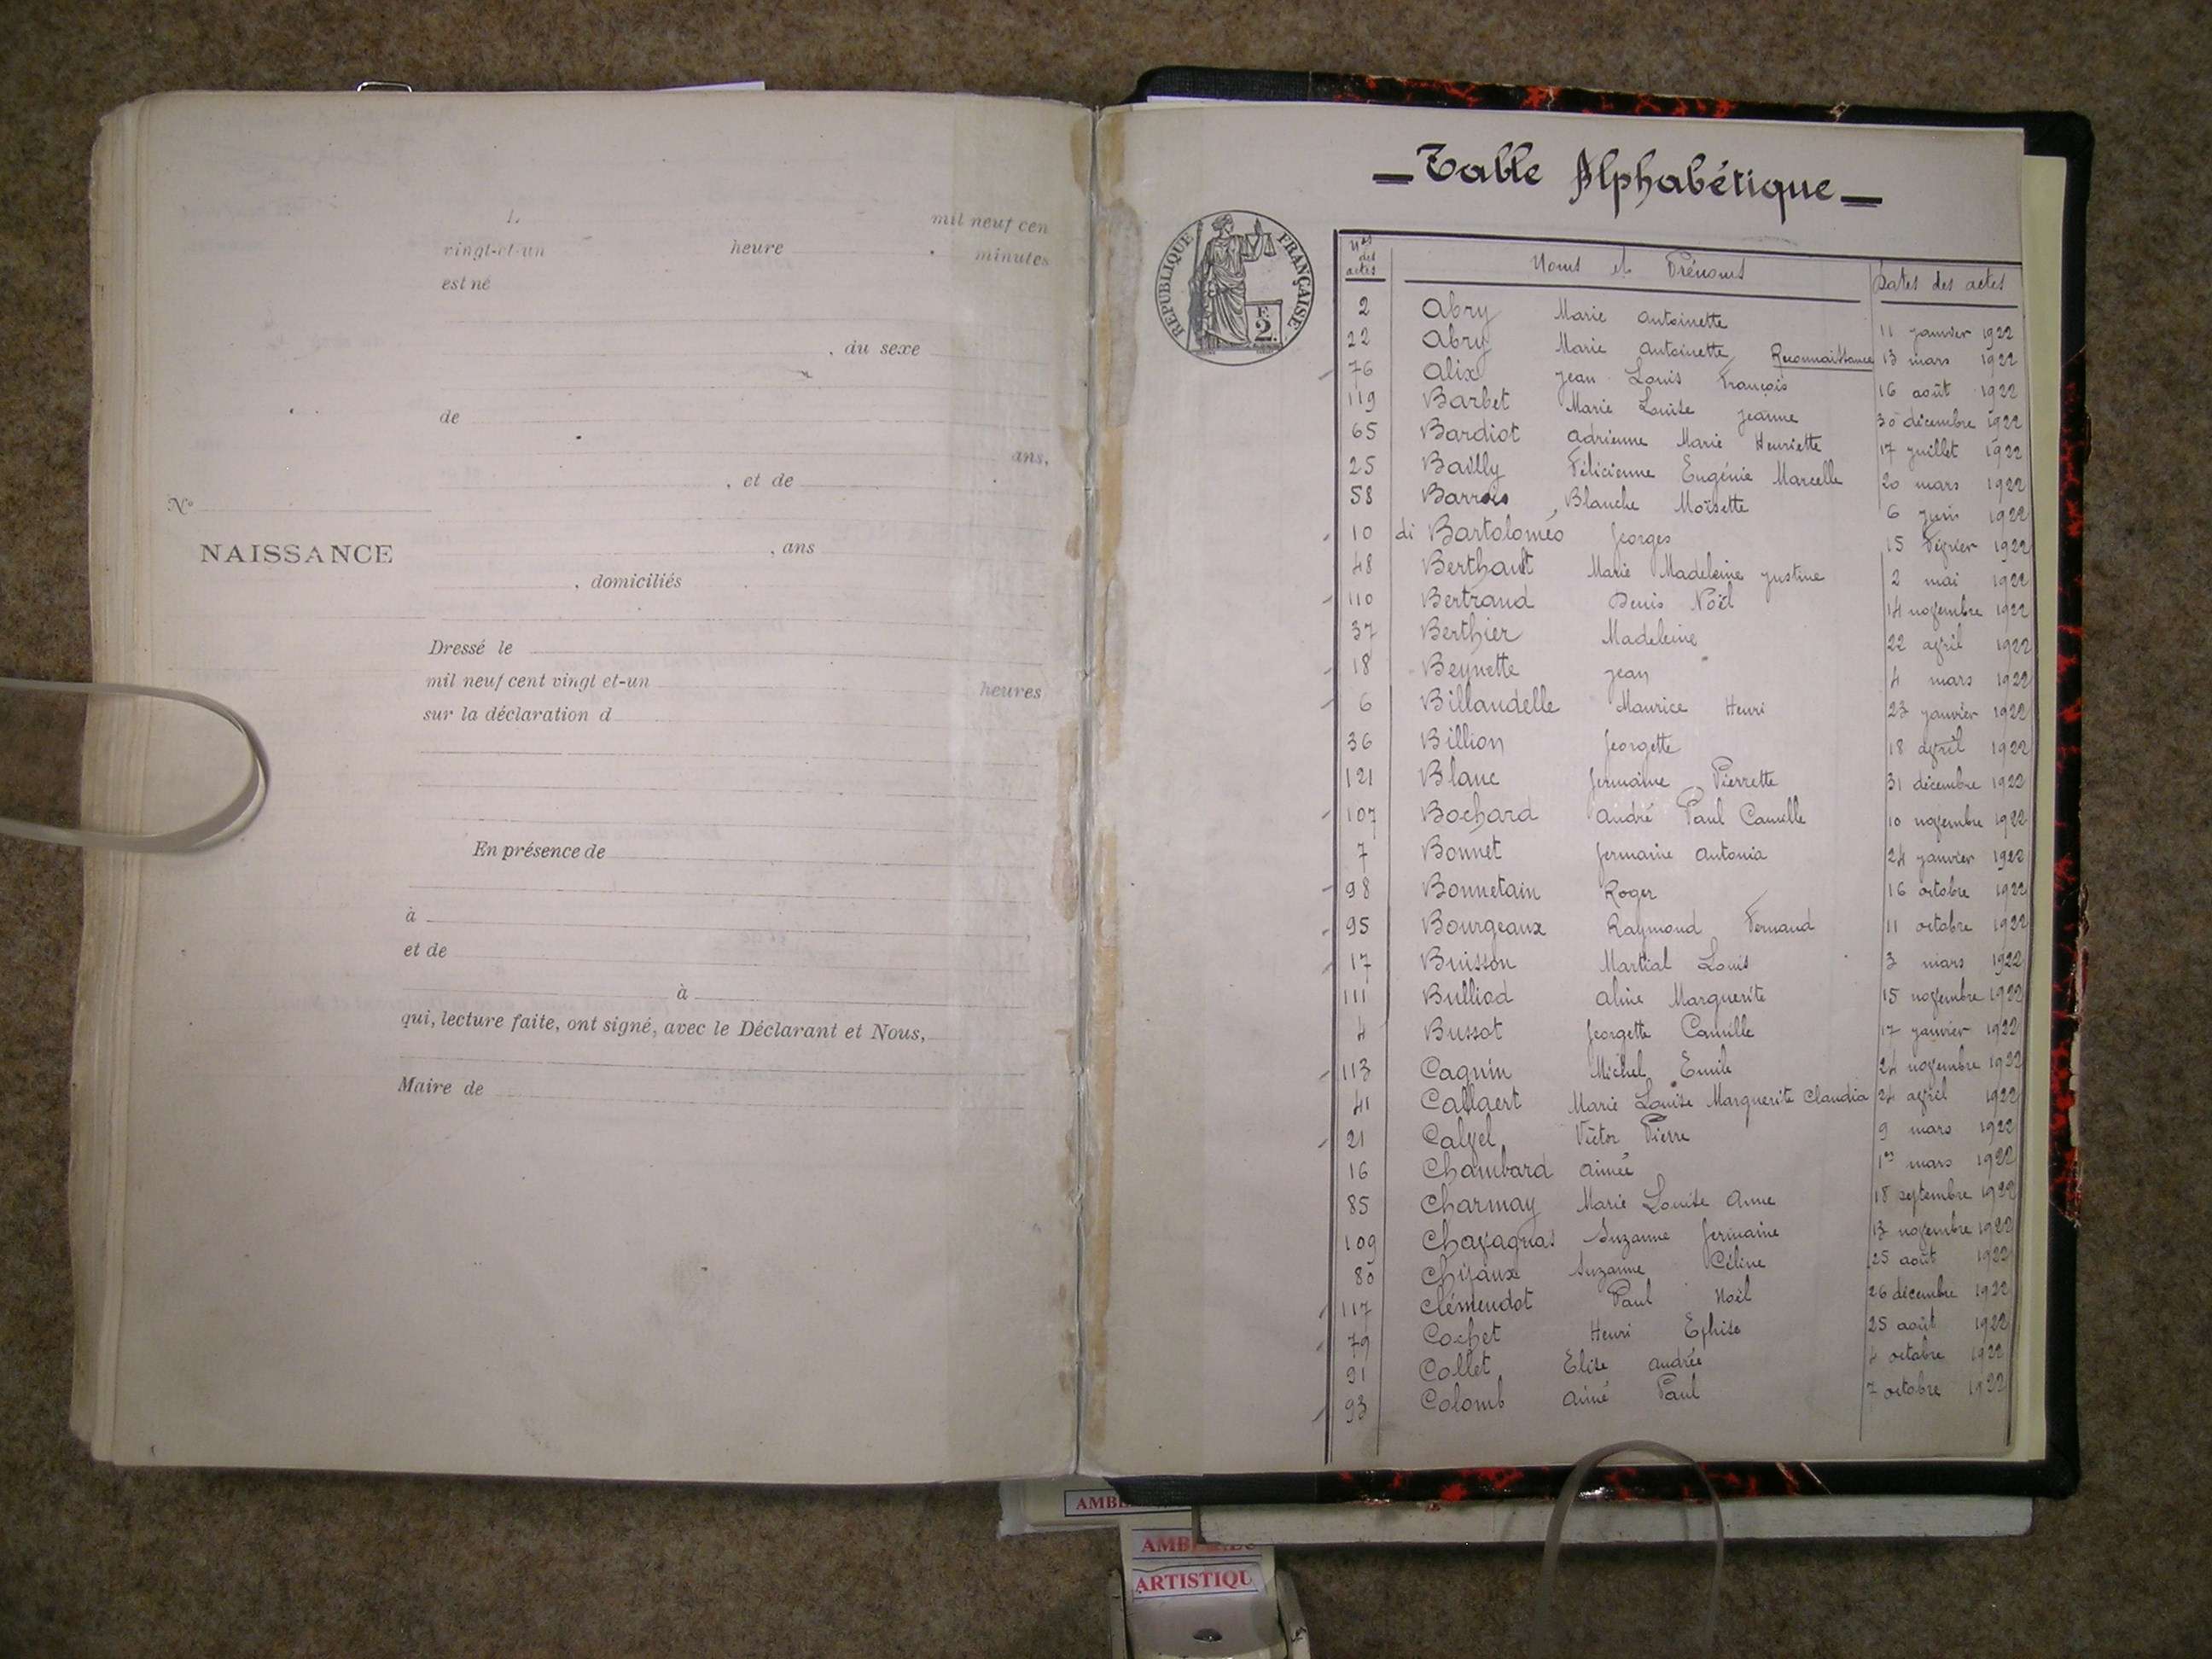 mil neuf cen
vingt-et-un heure minutes
est né
, du sexe
de
ans,
, et de
N°
NAISSANCE
, ans
, domiciliés
Dressé le
mil neuf cent vingt et-un heures
sur la déclaration d
En présence de
à
et de
à
qui, lecture faite, ont signé, avec le Déclarant et Nous,
Maire de
Table Alphabétique
RÉPUBLIQUE FRANÇAISE
F.
2.
Nos des actes Noms et Prénoms Dates des actes
2 Abry Marie Antoinette 11 janvier 1922
22 Abry Marie Antoinette Reconnaissance 13 mars 1922
76 Alix Jean Louis François 16 août 1922
119 Barbet Marie Louise Jeanne 30 décembre 1922
65 Bardiot Adrienne Marie Henriette 17 juillet 1922
25 Bailly Félicienne Eugénie Marcelle 20 mars 1922
58 Barrois Blanche Moïsette 6 juin 1922
10 di Bartoloméo Georges 15 février 1922
48 Berthault Marie Madeleine Justine 2 mai 1922
110 Bertrand Denis Noël 14 novembre 1922
37 Berthier Madeleine 22 avril 1922
18 Beynette Jean 4 mars 1922
6 Billaudelle Maurice Henri 23 janvier 1922
36 Billion Georgette 18 avril 1922
121 Blanc Germaine Pierrette 31 décembre 1922
107 Bochard André Paul Camille 10 novembre 1922
7 Bonnet Germaine Antonia 24 janvier 1922
98 Bonnetain Roger 16 octobre 1922
95 Bourgeaux Raymond Fernand 11 octobre 1922
17 Buisson Martial Louis 3 mars 1922
111 Bulliod Aline Marguerite 15 novembre 1922
4 Bussot Georgette Camille 17 janvier 1922
113 Cagnin Michel Emile 24 novembre 1922
41 Callaert Marie Louise Marguerite Claudia 24 avril 1922
21 Calvel Victor Pierre 9 mars 1922
16 Chambard Aimée 1er mars 1922
85 Charmay Marie Louise Anne 18 septembre 1922
109 Chavagnas Suzanne Germaine 13 novembre 1922
80 Chivaux Suzanne Céline 25 août 1922
117 Clémendot Paul Noël 26 décembre 1922
79 Cochet Henri Ephise 25 août 1922
91 Collet Elise Andrée 4 octobre 1922
93 Colomb Aimé Paul 7 octobre 1922
ARTISTIQU